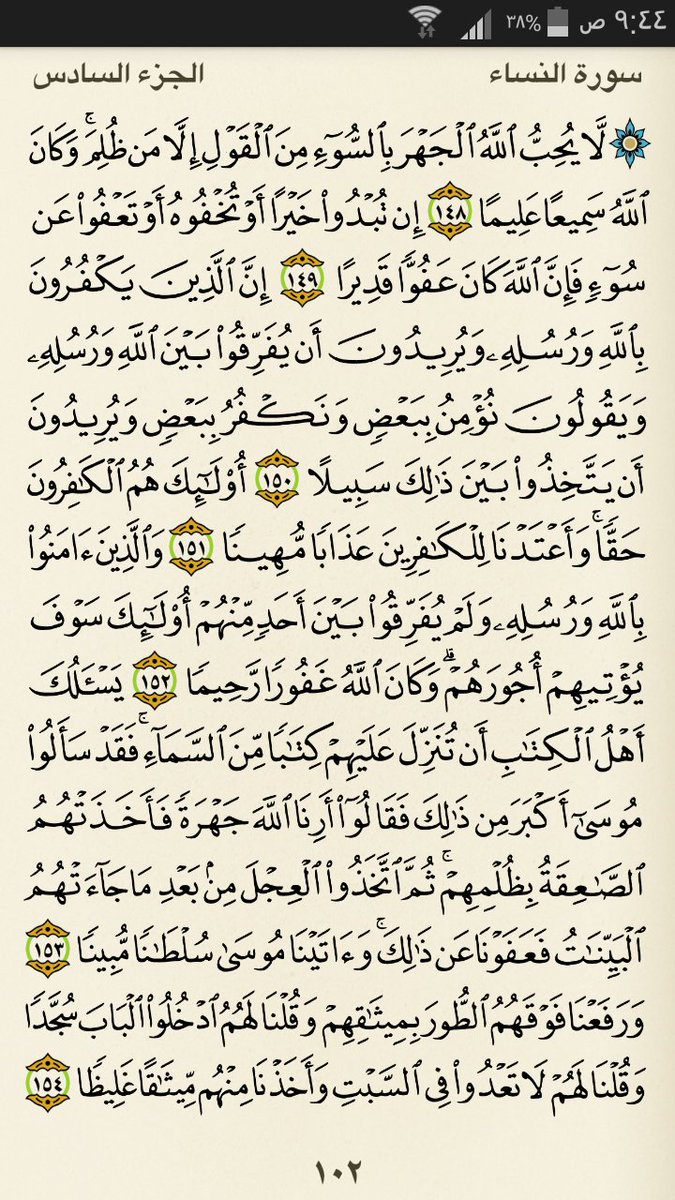 ٩:٤٤ ص ٣٨%
سورة النساء الجزء السادس
لَّا يُحِبُّ ٱللَّهُ ٱلۡجَهۡرَ بِٱلسُّوٓءِ مِنَ ٱلۡقَوۡلِ إِلَّا مَن ظُلِمَۚ وَكَانَ
ٱللَّهُ سَمِيعًا عَلِيمًا ١٤٨ إِن تُبۡدُواْ خَيۡرًا أَوۡ تُخۡفُوهُ أَوۡ تَعۡفُواْ عَن
سُوٓءٖ فَإِنَّ ٱللَّهَ كَانَ عَفُوّٗا قَدِيرًا ١٤٩ إِنَّ ٱلَّذِينَ يَكۡفُرُونَ
بِٱللَّهِ وَرُسُلِهِۦ وَيُرِيدُونَ أَن يُفَرِّقُواْ بَيۡنَ ٱللَّهِ وَرُسُلِهِۦ
وَيَقُولُونَ نُؤۡمِنُ بِبَعۡضٖ وَنَكۡفُرُ بِبَعۡضٖ وَيُرِيدُونَ
أَن يَتَّخِذُواْ بَيۡنَ ذَٰلِكَ سَبِيلًا ١٥٠ أُوْلَٰٓئِكَ هُمُ ٱلۡكَٰفِرُونَ
حَقّٗاۚ وَأَعۡتَدۡنَا لِلۡكَٰفِرِينَ عَذَابٗا مُّهِينٗا ١٥١ وَٱلَّذِينَ ءَامَنُواْ
بِٱللَّهِ وَرُسُلِهِۦ وَلَمۡ يُفَرِّقُواْ بَيۡنَ أَحَدٖ مِّنۡهُمۡ أُوْلَٰٓئِكَ سَوۡفَ
يُؤۡتِيهِمۡ أُجُورَهُمۡۗ وَكَانَ ٱللَّهُ غَفُورٗا رَّحِيمٗا ١٥٢ يَسۡـَٔلُكَ
أَهۡلُ ٱلۡكِتَٰبِ أَن تُنَزِّلَ عَلَيۡهِمۡ كِتَٰبٗا مِّنَ ٱلسَّمَآءِۚ فَقَدۡ سَأَلُواْ
مُوسَىٰٓ أَكۡبَرَ مِن ذَٰلِكَ فَقَالُوٓاْ أَرِنَا ٱللَّهَ جَهۡرَةٗ فَأَخَذَتۡهُمُ
ٱلصَّٰعِقَةُ بِظُلۡمِهِمۡۚ ثُمَّ ٱتَّخَذُواْ ٱلۡعِجۡلَ مِنۢ بَعۡدِ مَا جَآءَتۡهُمُ
ٱلۡبَيِّنَٰتُ فَعَفَوۡنَا عَن ذَٰلِكَۚ وَءَاتَيۡنَا مُوسَىٰ سُلۡطَٰنٗا مُّبِينٗا ١٥٣
وَرَفَعۡنَا فَوۡقَهُمُ ٱلطُّورَ بِمِيثَٰقِهِمۡ وَقُلۡنَا لَهُمُ ٱدۡخُلُواْ ٱلۡبَابَ سُجَّدٗا
وَقُلۡنَا لَهُمۡ لَا تَعۡدُواْ فِي ٱلسَّبۡتِ وَأَخَذۡنَا مِنۡهُم مِّيثَٰقًا غَلِيظٗا ١٥٤
١٠٢